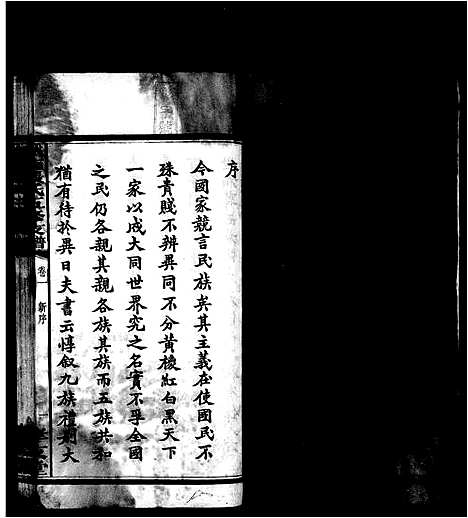 序
今國家競言民族矣其主義在使國民不
殊貴賤不辨異同不分黃椶紅白黑天下
一家以成大同世界究之名實不孚全國
之民仍各親其親各族其族而五族共和
猶有待於異日夫書云惇敘九族禮別大
卷一 新序